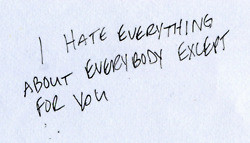 I HATE EVERYTHING
ABOUT EVERYBODY EXCEPT
FOR YOU